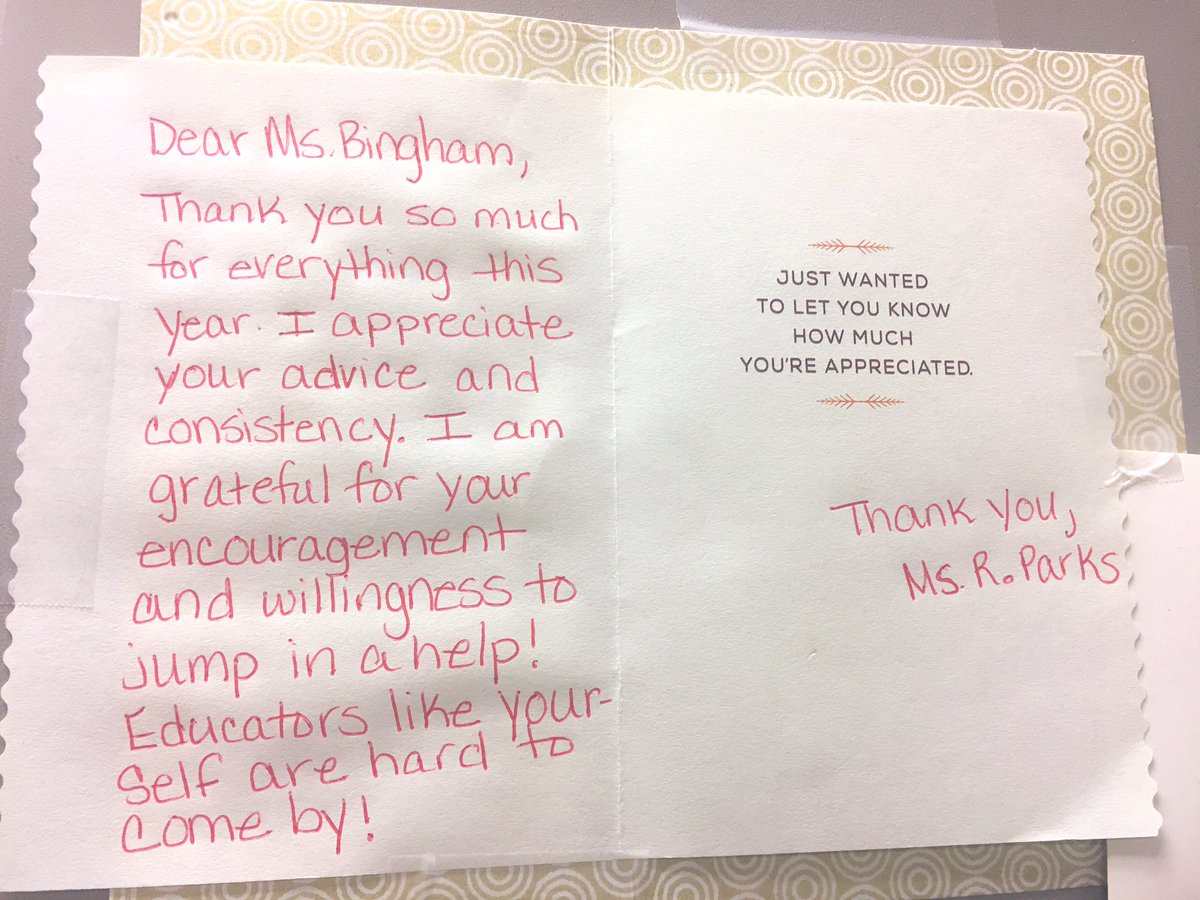 Dear Ms. Bingham,
Thank you so much
for everything this
year. I appreciate
your advice and
consistency. I am
grateful for your
encouragement
and willingness to
jump in a help!
Educators like your-
self are hard to
come by!
JUST WANTED
TO LET YOU KNOW
HOW MUCH
YOU'RE APPRECIATED.
Thank you,
Ms. R. Parks